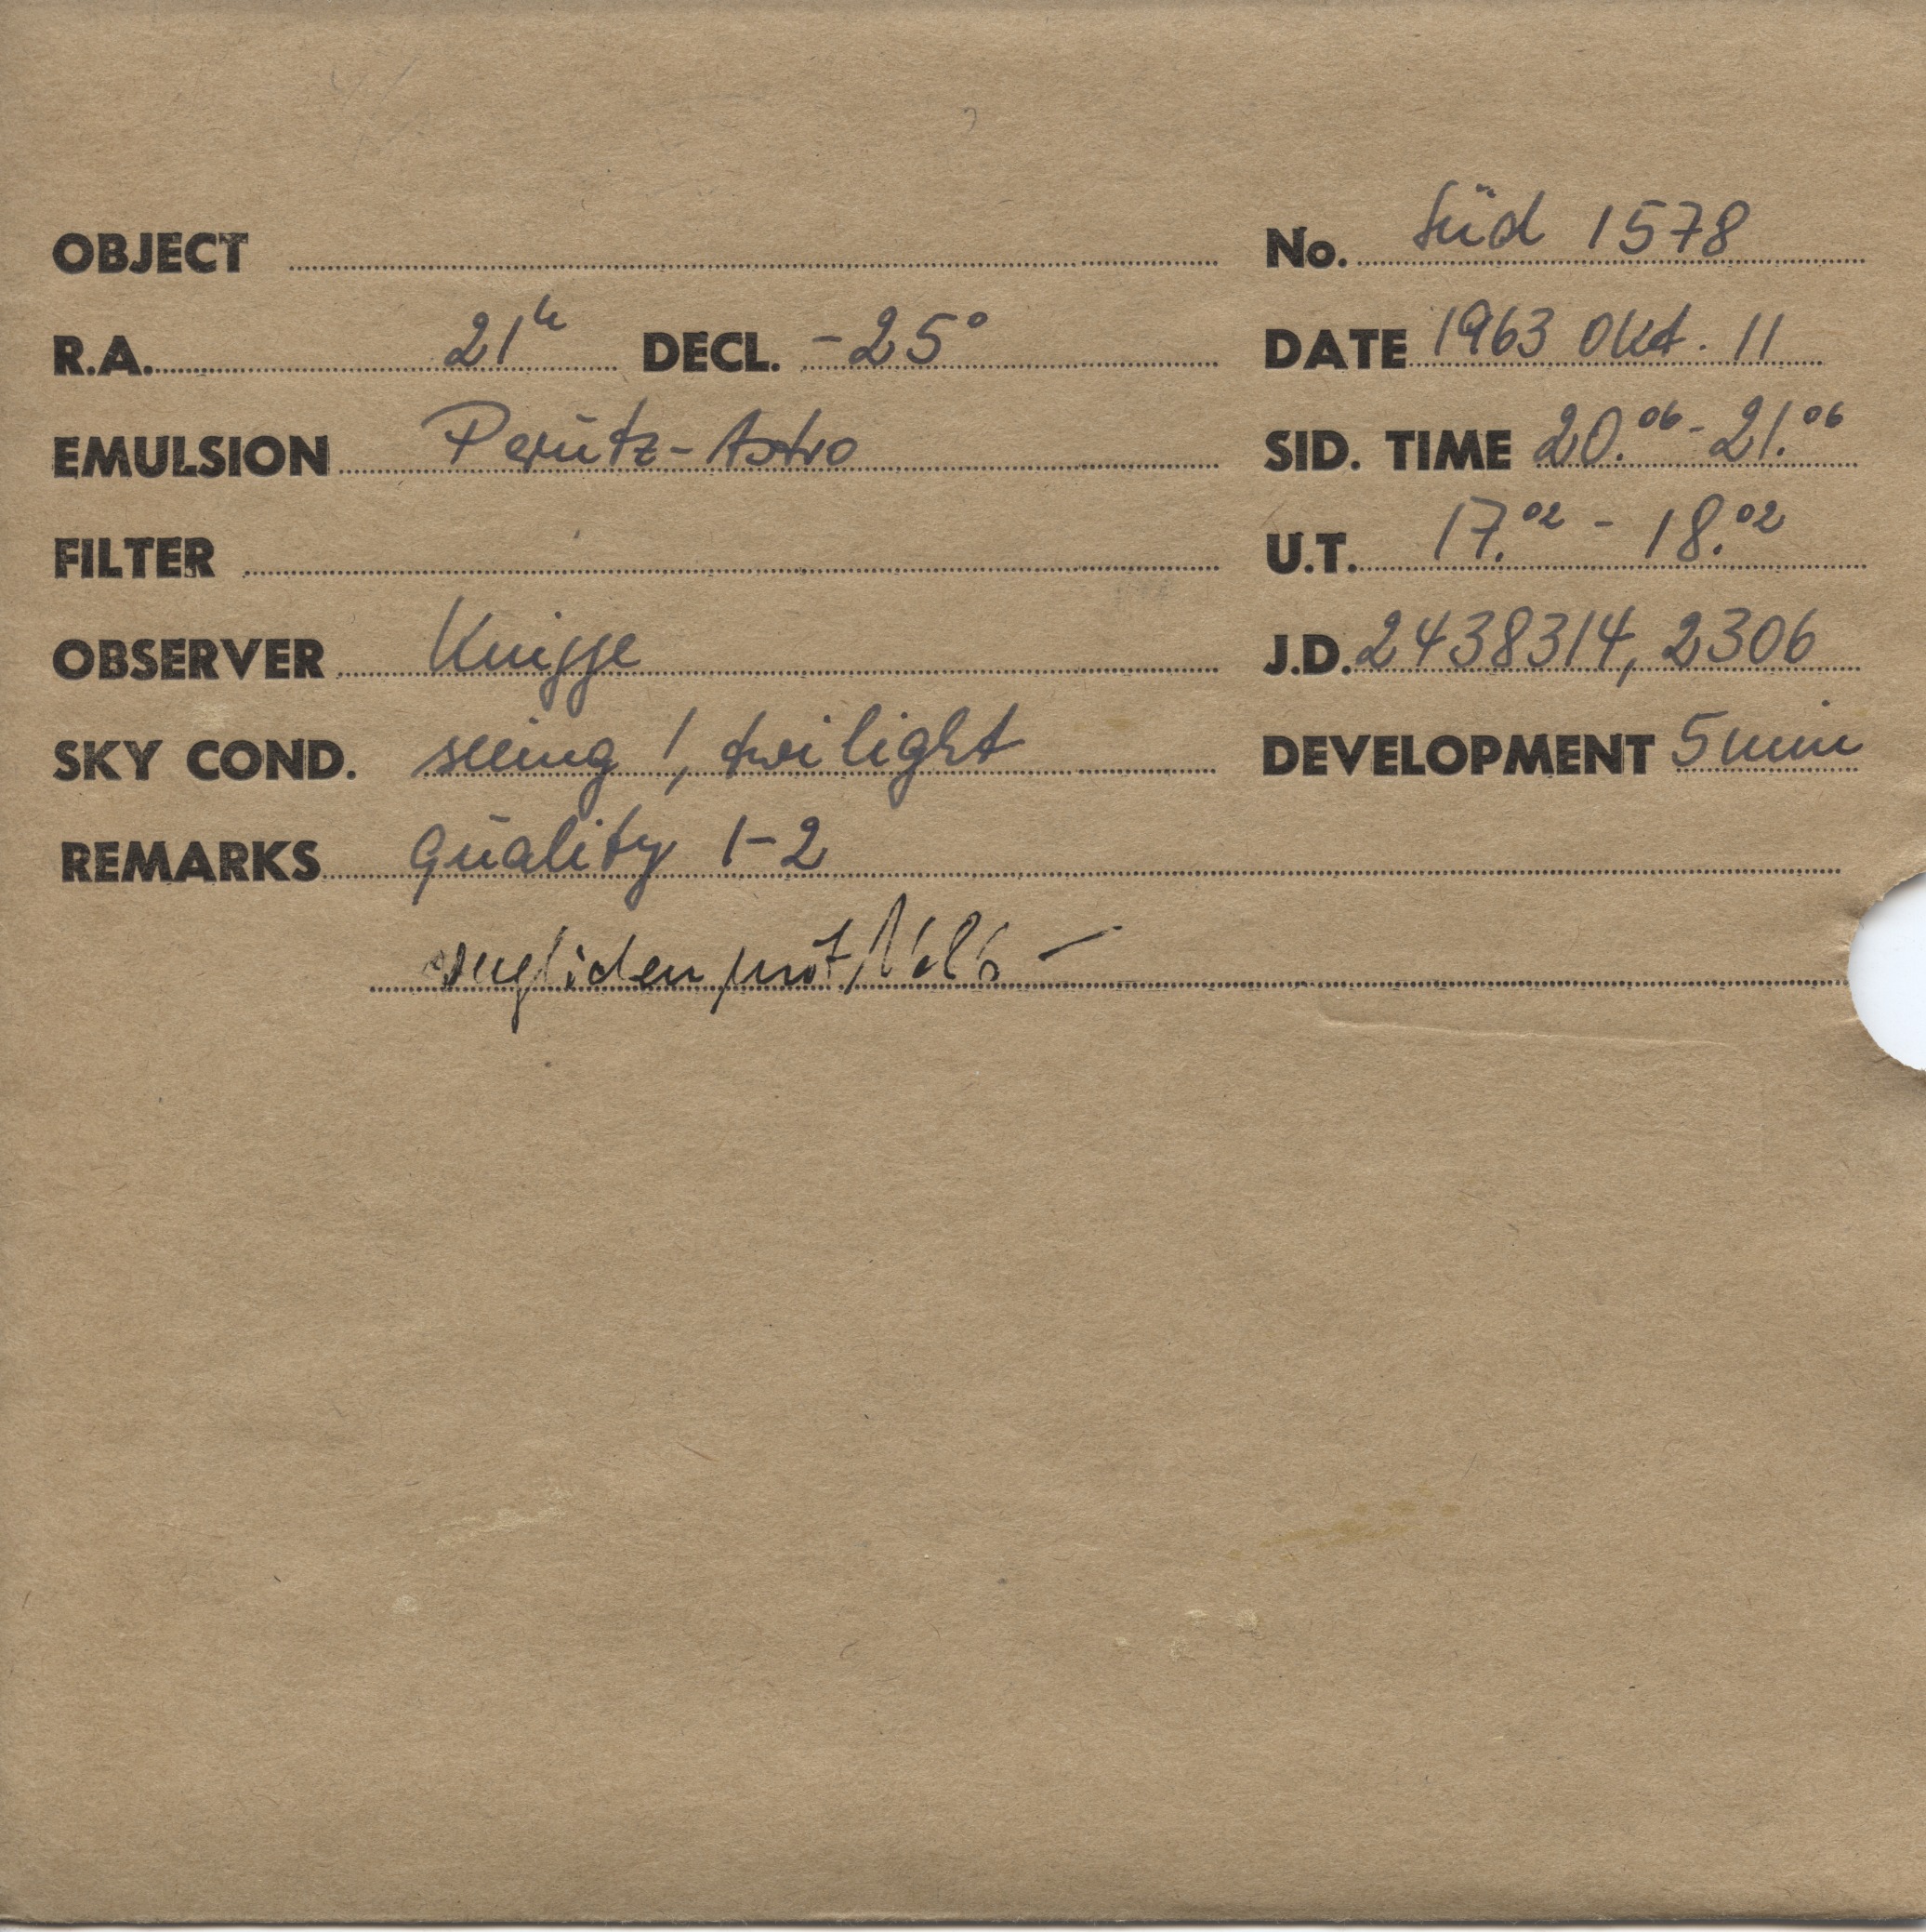 OBJECT No. Süd 1578
R.A. 21h DECL. -25° DATE 1963 Okt. 11
EMULSION Perutz-Astro SID. TIME 20.06 - 21.06
FILTER U.T. 17.02 - 18.02
OBSERVER Knigge J.D. 2438314,2306
SKY COND. seeing !, twilight DEVELOPMENT 5 min
REMARKS Quality 1-2